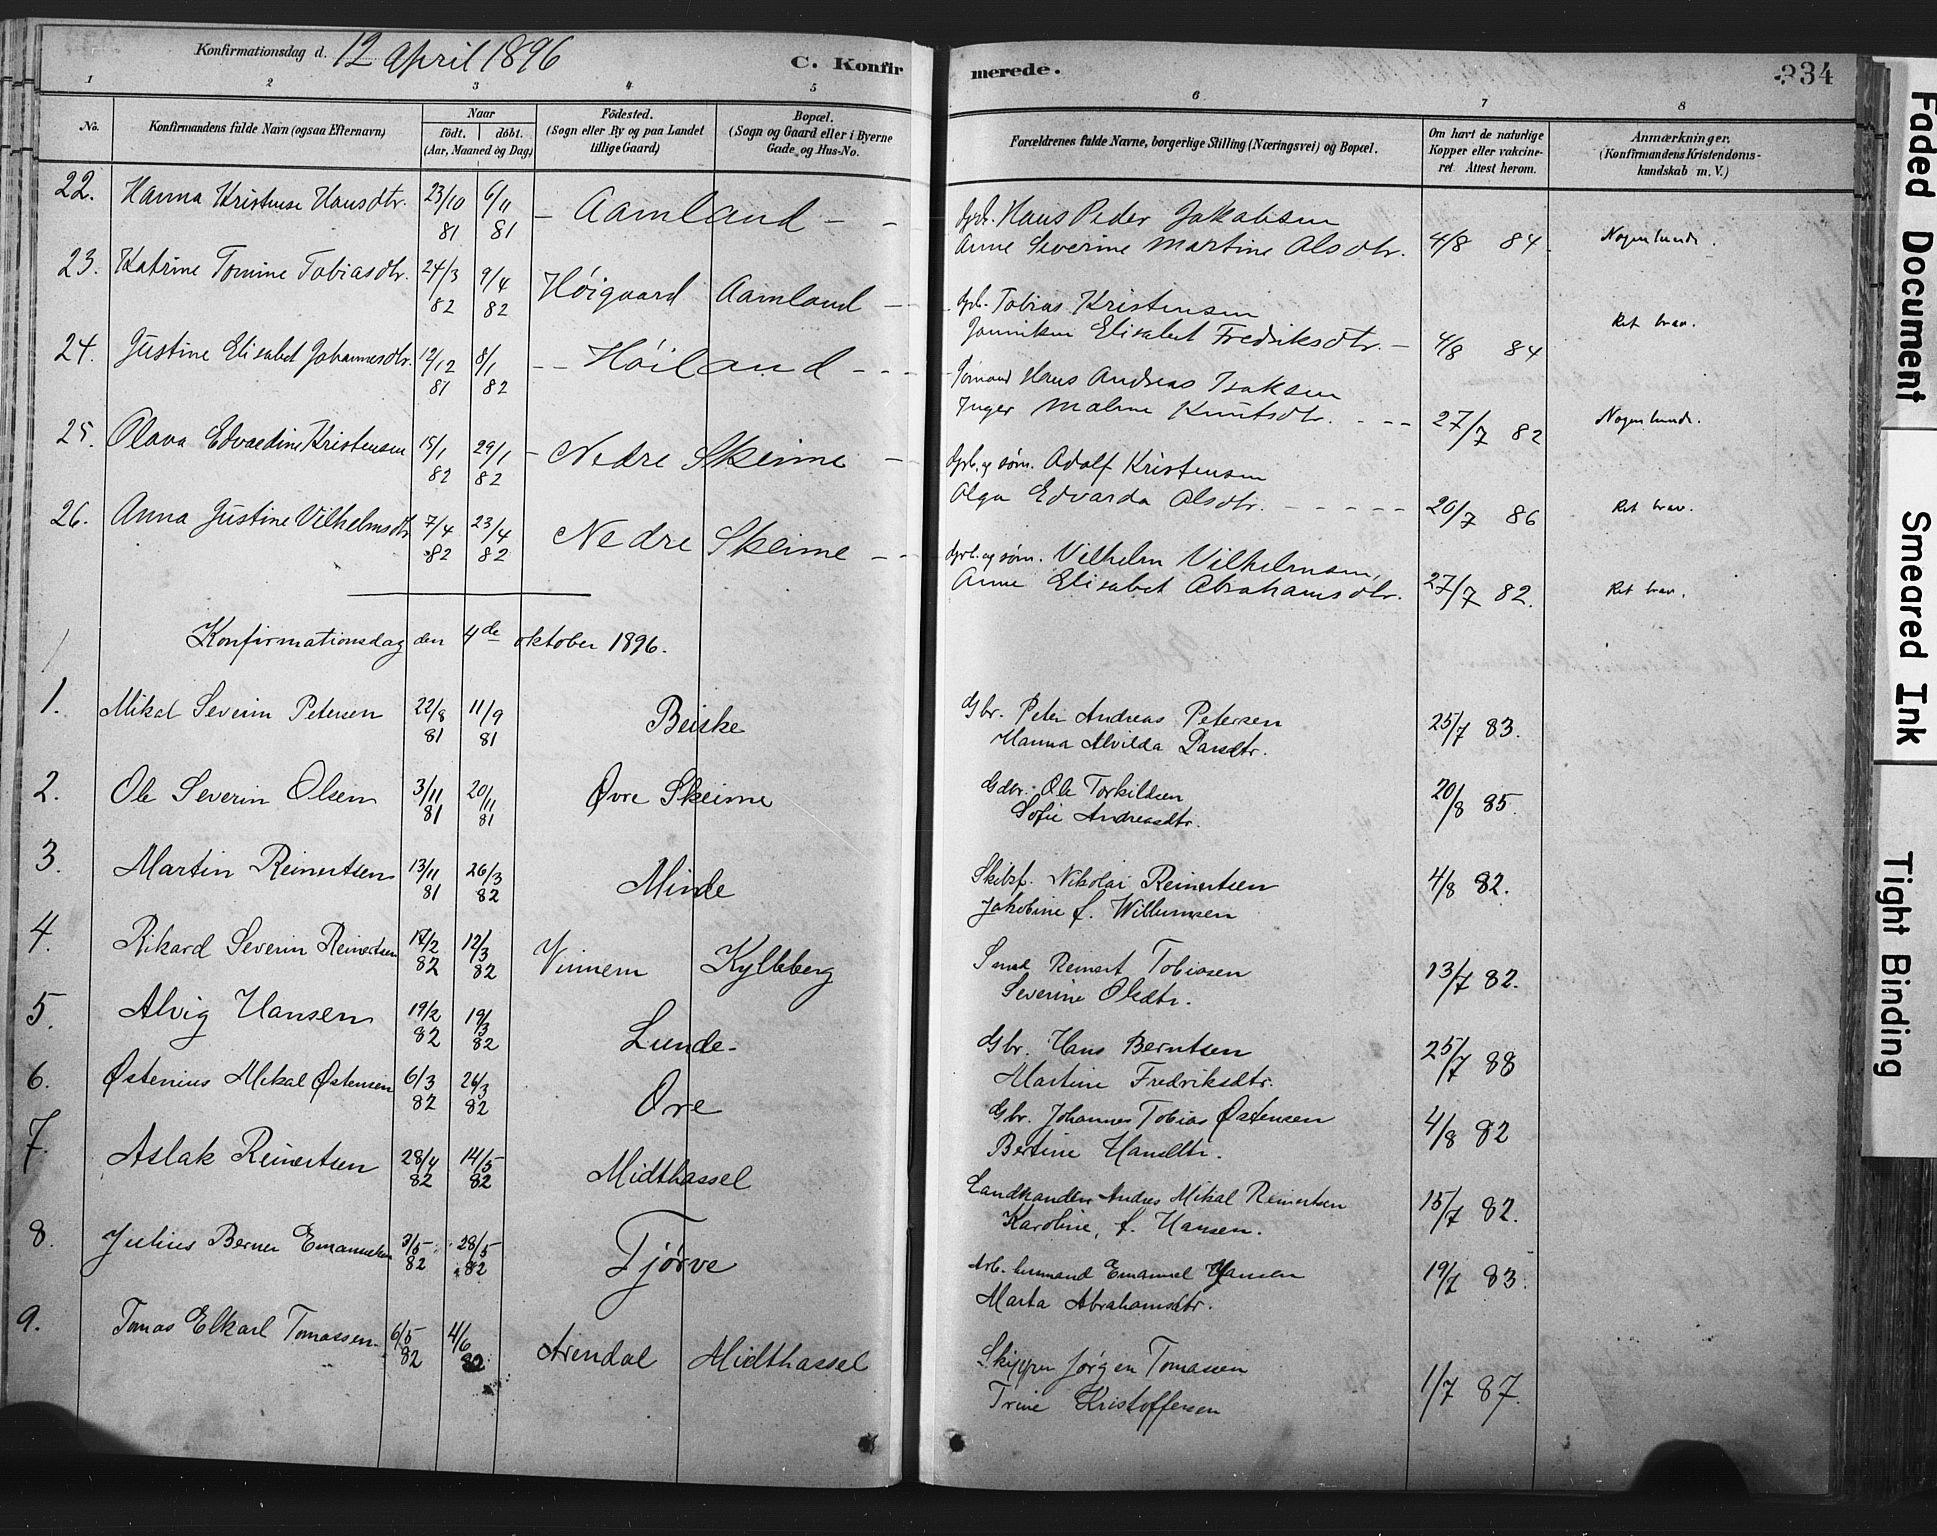 Konfirmationsdag d. 12 April 1896
C. Konfirmerede.
334
1 2 3 4 5 6 7 8
No.
Konfirmandens fulde Navn (ogsaa Efternavn)
Naar
födt. döbt.
(Aar, Maaned og Dag)
Födested.
(Sogn eller By og paa Landet
tillige Gaard)
Bopæl.
(Sogn og Gaard eller i Byerne
Gade og Hus-No.
Forældrenes fulde Navne, borgerlige Stilling (Næringsvei) og Bopæl.
Om havt de naturlige
Kopper eller vakcine-
ret Attest herom.
Anmærkninger.
(Konfirmandens Kristendoms-
kundskab m. V.)
22. Hanna Kristense Hansdtr. 23/10 81 6/11 81 - Aamland - -
Gbr. Hans Peder Jakobsen
Anne Severine Martine Olsdtr. 4/8 84. Nogenlunde.
23. Katrine Tomine Tobiasdtr. 24/3 82 9/4 82 Høigaard Aamland -
Gbr. Tobias Kristensen
Janniken Elisabet Fredriksdtr. - 4/8 84 Ret brav.
24. Justine Elisabet Johannesdtr. 12/12 81 8/1 82 -- Høiland ---
Hans Andreas Isaksen
Inger Malene Knutsdtr. --- 27/7 82 Nogenlunde.
25. Olava Edvardine Kristensen 15/1 82 29/1 82 - Nedre Skeime -
Gbr. og søm. Adolf Kristensen
Olga Edvarda Olsdtr. ----- 20/7 86 Ret brav.
26. Anna Justine Vilhelmsdtr 7/4 82 23/4 82 Nedre Skeime --
Gbr. og søm. Vilhelm Vilhelmsen,
Anne Elisabet Abrahamsdtr. 27/7 82. Ret brav.
Konfirmationsdag den 4de oktober 1896.
1. Mikal Severin Petersen 22/8 81 11/9 81 Beiske
Gbr. Peter Andreas Petersen
Hanna Alvilda Larsdtr. 25/7 83.
2. Ole Severin Olsen 3/11 81 20/11 81 Øvre Skeime
Gdbr. Ole Torkildsen
Sofie Andreasdtr. 20/8 85.
3. Martin Reinertsen 13/11 81 26/3 82 Minde
Skibsf. Nikolai Reinertsen
Jakobine f. Willumsen 4/8 82.
4. Rikard Severin Reinertsen 17/2 82 12/3 82 Vinnem Kylleberg
Smed Reinert Tobiasen
Severine Olsdtr. 13/7 82.
5. Alvig Hansen 19/2 82 19/3 82 Lunde-
Gbr. Hans Berntsen
Martine Fredriksdtr. 25/7 88
6. Østenius Mikal Østensen 6/3 82 26/3 82 Ore
Gbr. Johannes Tobias Østensen
Bertine Hansdtr. 4/8 82
7. Aslak Reinertsen 28/4 82 14/5 82 Midthassel
Landhandler Andreas Mikal Reinertsen
Karoline, f. Hansen. 15/7 82.
8. Julius Berner Emanuelsen 3/5 82 28/5 82 Tjørve
Arb. Emanuel Hansen
Marta Abrahamsdtr. 19/7 83.
9. Tomas Elkarl Tomassen 6/5 82 4/6 82 Arendal Midthassel
Skipper Jørgen Tomassen
Trine Kristoffersen 1/7 87.
Faded Document
Smeared Ink
Tight Binding